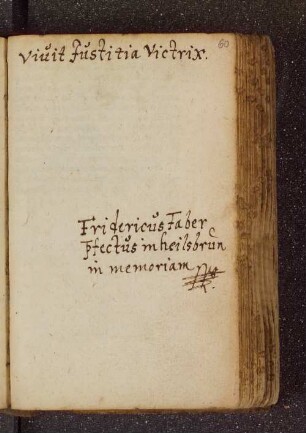 60
Viuit Justitia Victrix.
Fridericus Faber
p̱fectus in heilsbrūn
in memoriam